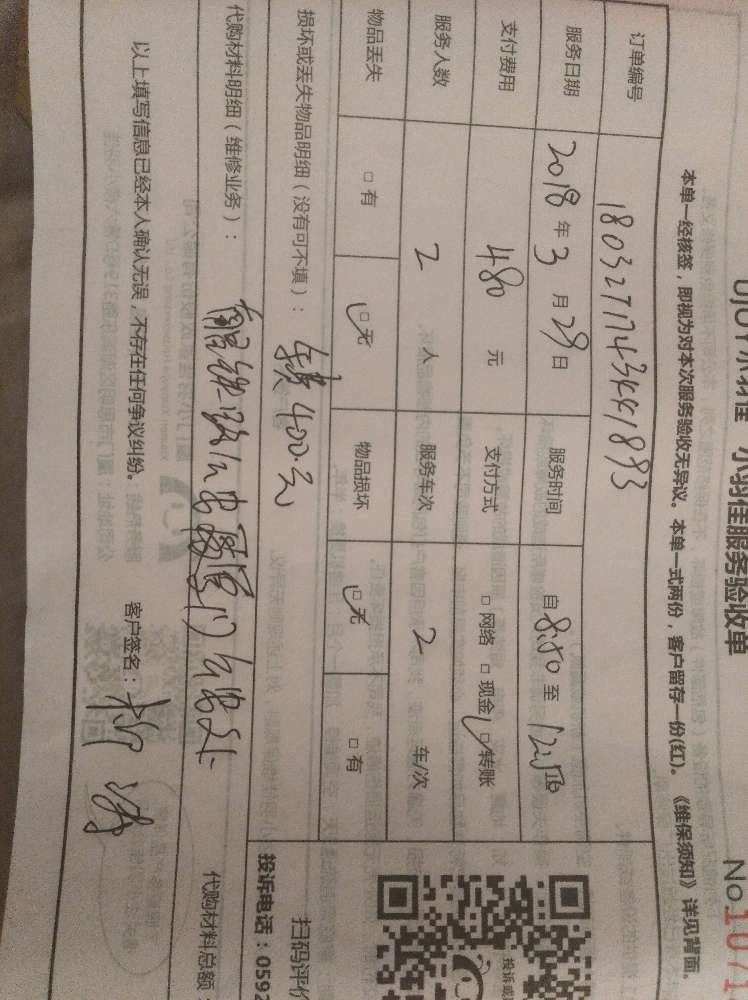 UJOY小羽佳 小羽佳服务验收单
No.1071
本单一经核签，即视为对本次服务验收无异议。本单一式两份，客户留存一份(红)。《维保须知》详见背面。
订单编号
服务日期 2018 年 3 月 29 日 服务时间 自 8:50 至
支付费用 480 元 支付方式 □ 网络 □ 现金 □ 转账
服务人数 2 人 服务车次 2 车/次
物品丢失 □ 有 □ 无 物品损坏 □ 无 □ 有
损坏或丢失物品明细（没有可不填）： 转 400.元
扫码评价
投诉电话：0592
代购材料明细（维修业务）： 南昌铁路公安处厦门
代购材料总额：
以上填写信息已经本人确认无误，不存在任何争议纠纷。 客户签名：